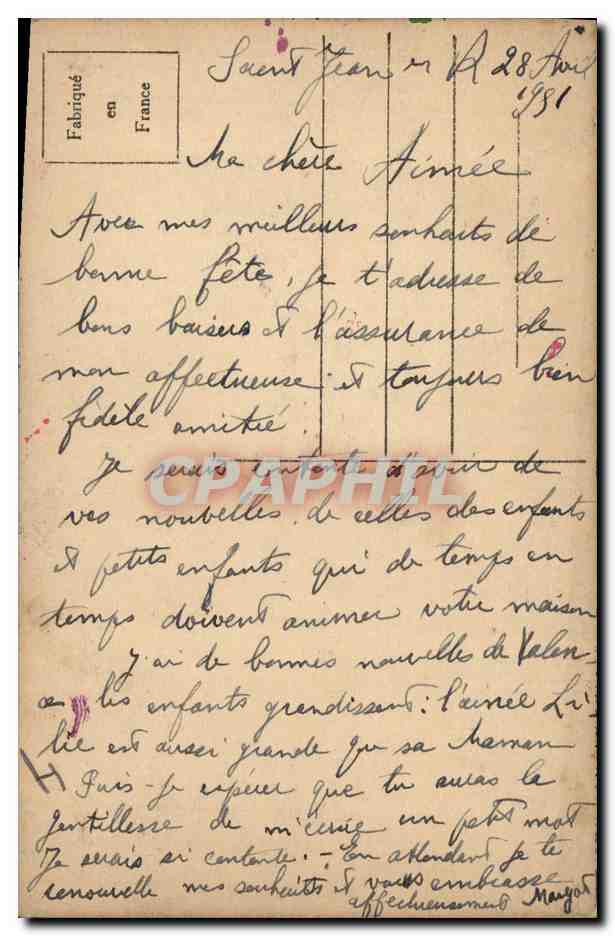 Saint Jean en R 28 Avril
1951
Fabriqué
en
France
Ma chère Aimée
Avec mes meilleurs souhaits de
bonne fête, je t'adresse de
bons baisers et l'assurance de
mon affectueuse et toujours bien
fidèle amitié.
CPAPHIL
Je serais contente d'avoir de
vos nouvelles, de celles des enfants
et petits enfants qui de temps en
temps doivent animer votre maison
J'ai de bonnes nouvelles de Valen-
ce les enfants grandissent : l'ainée Li-
lie est aussi grande que sa Maman
Puis-je espérer que tu auras la
gentillesse de m'écrire un petit mot
Je serais si contente. - En attendant je te
renouvelle mes souhaits et vous embrasse
affectueusement Margot